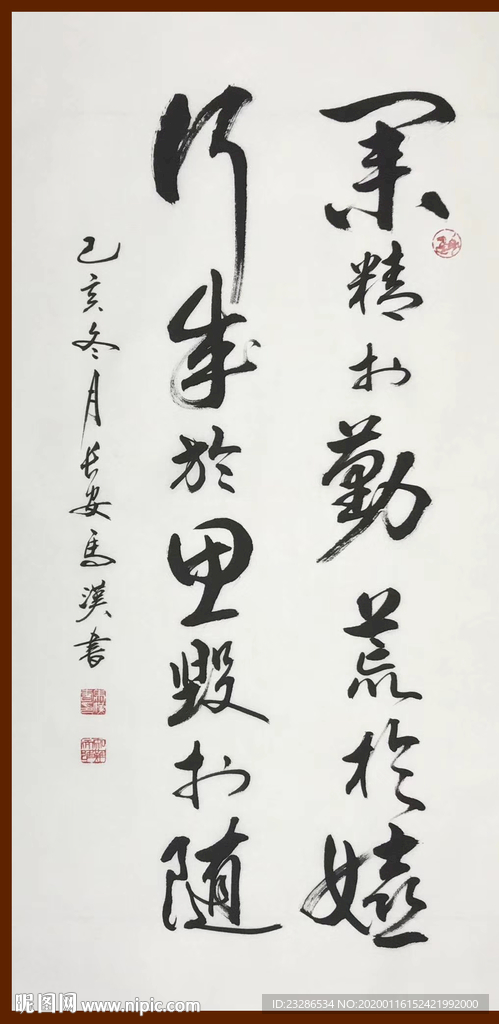 業精於勤荒於嬉
行成於思毀於随
己亥冬月長安馬漢書
昵图网 www.nipic.com
ID:23286534 NO:20200116152421992000